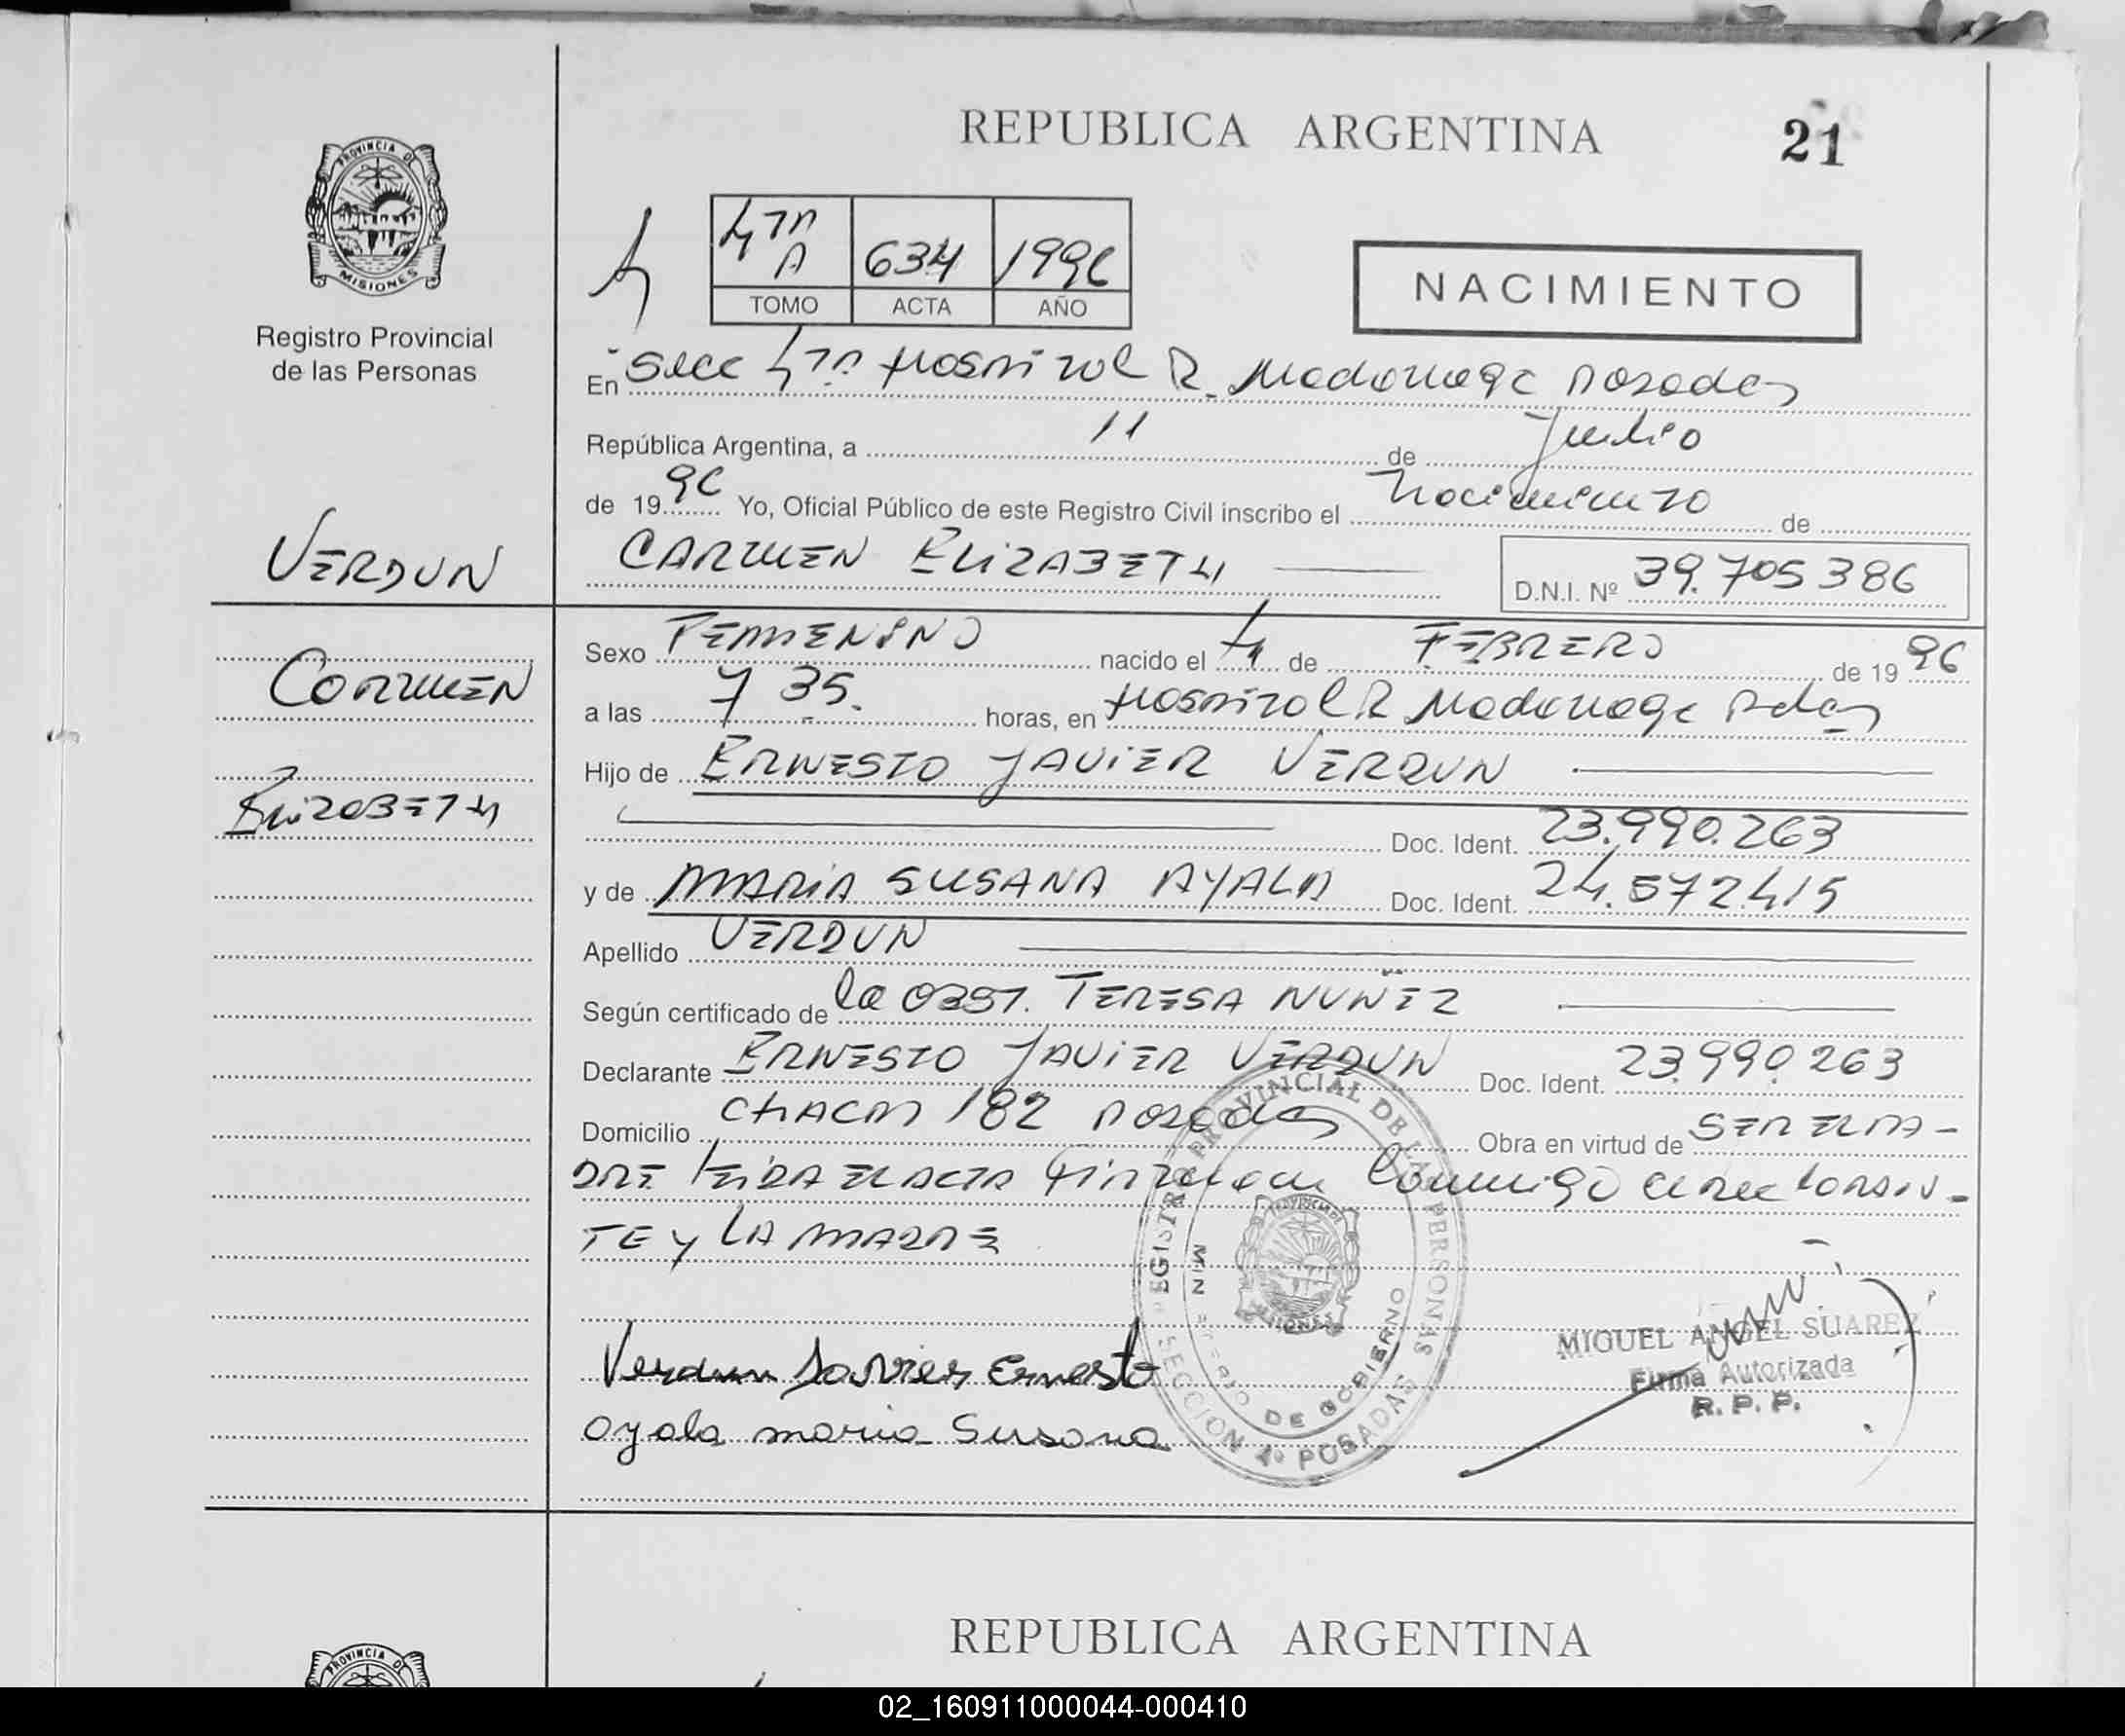 REPUBLICA ARGENTINA
21
PROVINCIA DE
MISIONES
Registro Provincial
de las Personas
4
4ta A 634 1996
TOMO ACTA AÑO
NACIMIENTO
En Secc 4ta Hospital R. Madariaga Posadas
República Argentina, a 11 de Julio
de 1996 Yo, Oficial Público de este Registro Civil inscribo el Nacimiento de
VERDUN
CARMEN ELIZABETH
D.N.I. Nº 39.705386
CARMEN
ELIZABETH
Sexo FEMENINO nacido el 4 de FEBRERO de 1996
a las 7 35. horas, en Hospital R Madariaga Pdas
Hijo de ERNESTO JAVIER VERDUN
Doc. Ident. 23.990.263
y de MARIA SUSANA AYALA Doc. Ident. 24.572415
Apellido VERDUN
Según certificado de la OBST. TERESA NUÑEZ
Declarante ERNESTO JAVIER VERDUN Doc. Ident. 23.990.263
Domicilio CHACRA 182 Posadas Obra en virtud de SER EL PA-
DRE LEIDA EL ACTA Firman Conmigo el declaran-
TE y LA MADRE
Verdun Javier Ernesto
Ayala maria Susana
REGISTRO PROVINCIAL DE LAS PERSONAS
MINISTERIO DE GOBIERNO
SECCION 4º POSADAS
MISIONES
MIGUEL ANGEL SUAREZ
Firma Autorizada
R. P. P.
REPUBLICA ARGENTINA
PROVINCIA DE
02_160911000044-000410